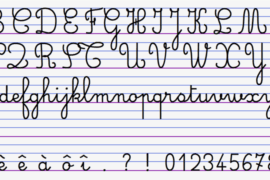 B C D E F G H I J K L M
P Q R S T U V W X Y
defghijklmnopqrstuvwxy
ê ê à ô î . ? ! 012345678